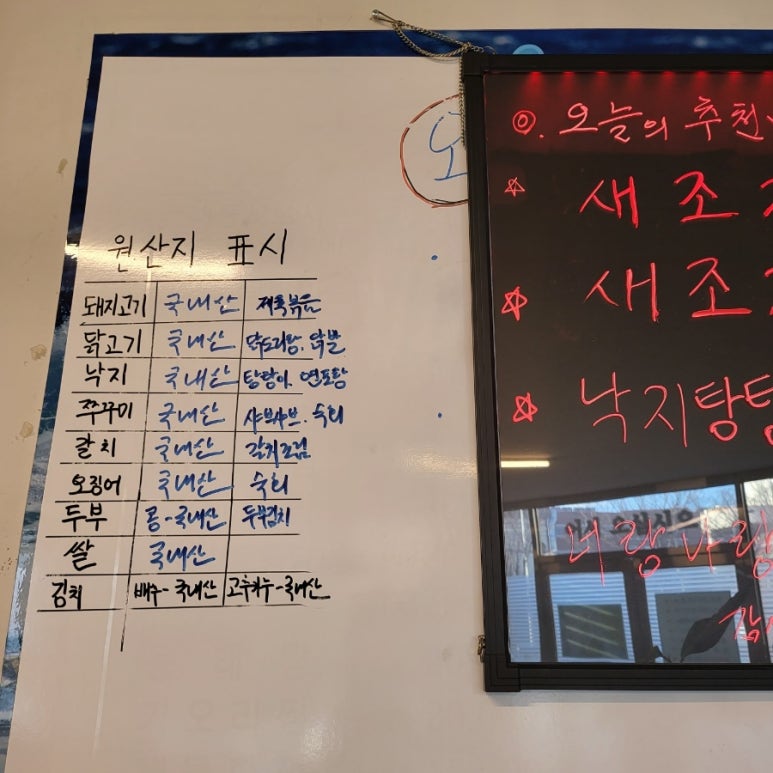 원산지 표시
돼지고기 국내산 제육볶음
닭고기 국내산 닭도리탕. 닭발
낙지 국내산 탕탕이. 연포탕
쭈꾸미 국내산 샤브샤브. 숙회
갈치 국내산 갈치조림
오징어 국내산 숙회
두부 콩-국내산 두부김치
쌀 국내산
김치 배추-국내산 고추가루-국내산
오
◎. 오늘의 추천
☆ 새조
☆ 새조
☆ 낙지탕탕
너랑나랑